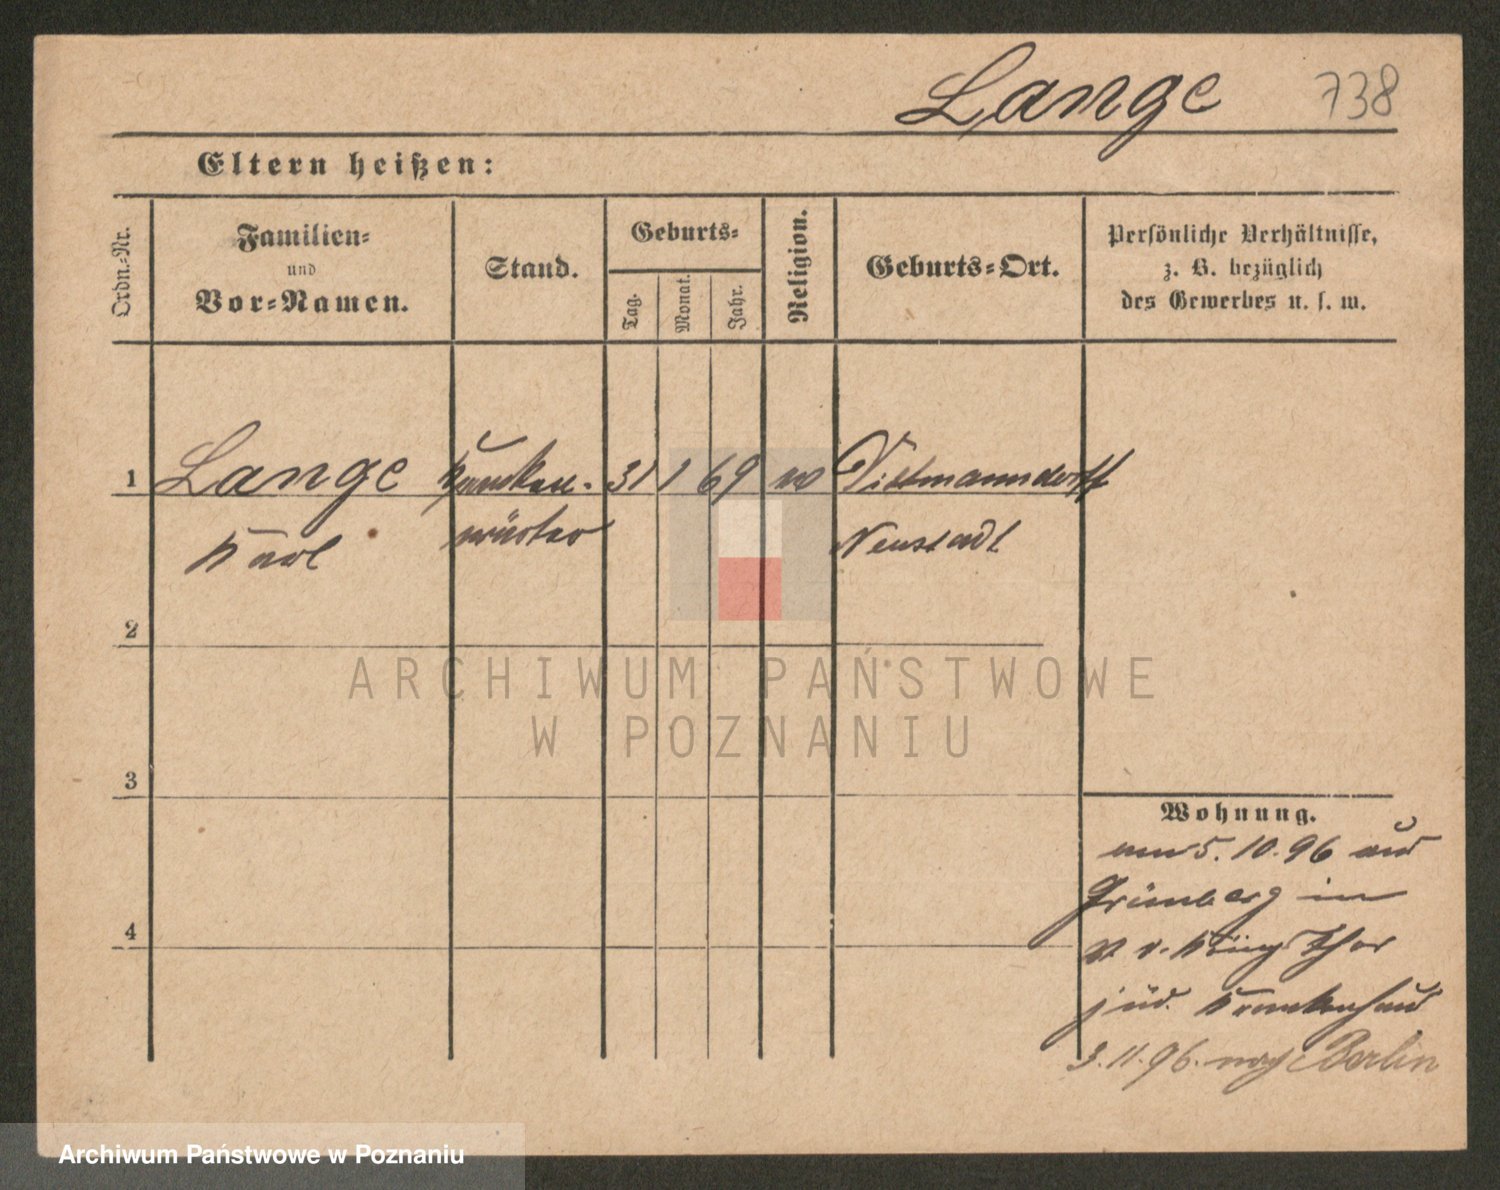 Lange 738
Eltern heißen:
Ordn.-Nr.
Familien-
und
Vor-Namen.
Stand.
Geburts-
Tag.
Monat.
Jahr.
Religion.
Geburts-Ort.
Persönliche Verhältnisse,
z. B. bezüglich
des Gewerbes u. s. w.
1 Lange Kranken- 31 1 69 Dittmannsdorff
Karl wärter Neustadt
2
3
4
Wohnung.
5. 10. 96 aus
Grünberg in
v. Königsthor
jüd. Krankenhaus
3. 11. 96. nach Berlin
ARCHIWUM PAŃSTWOWE
W POZNANIU
Archiwum Państwowe w Poznaniu